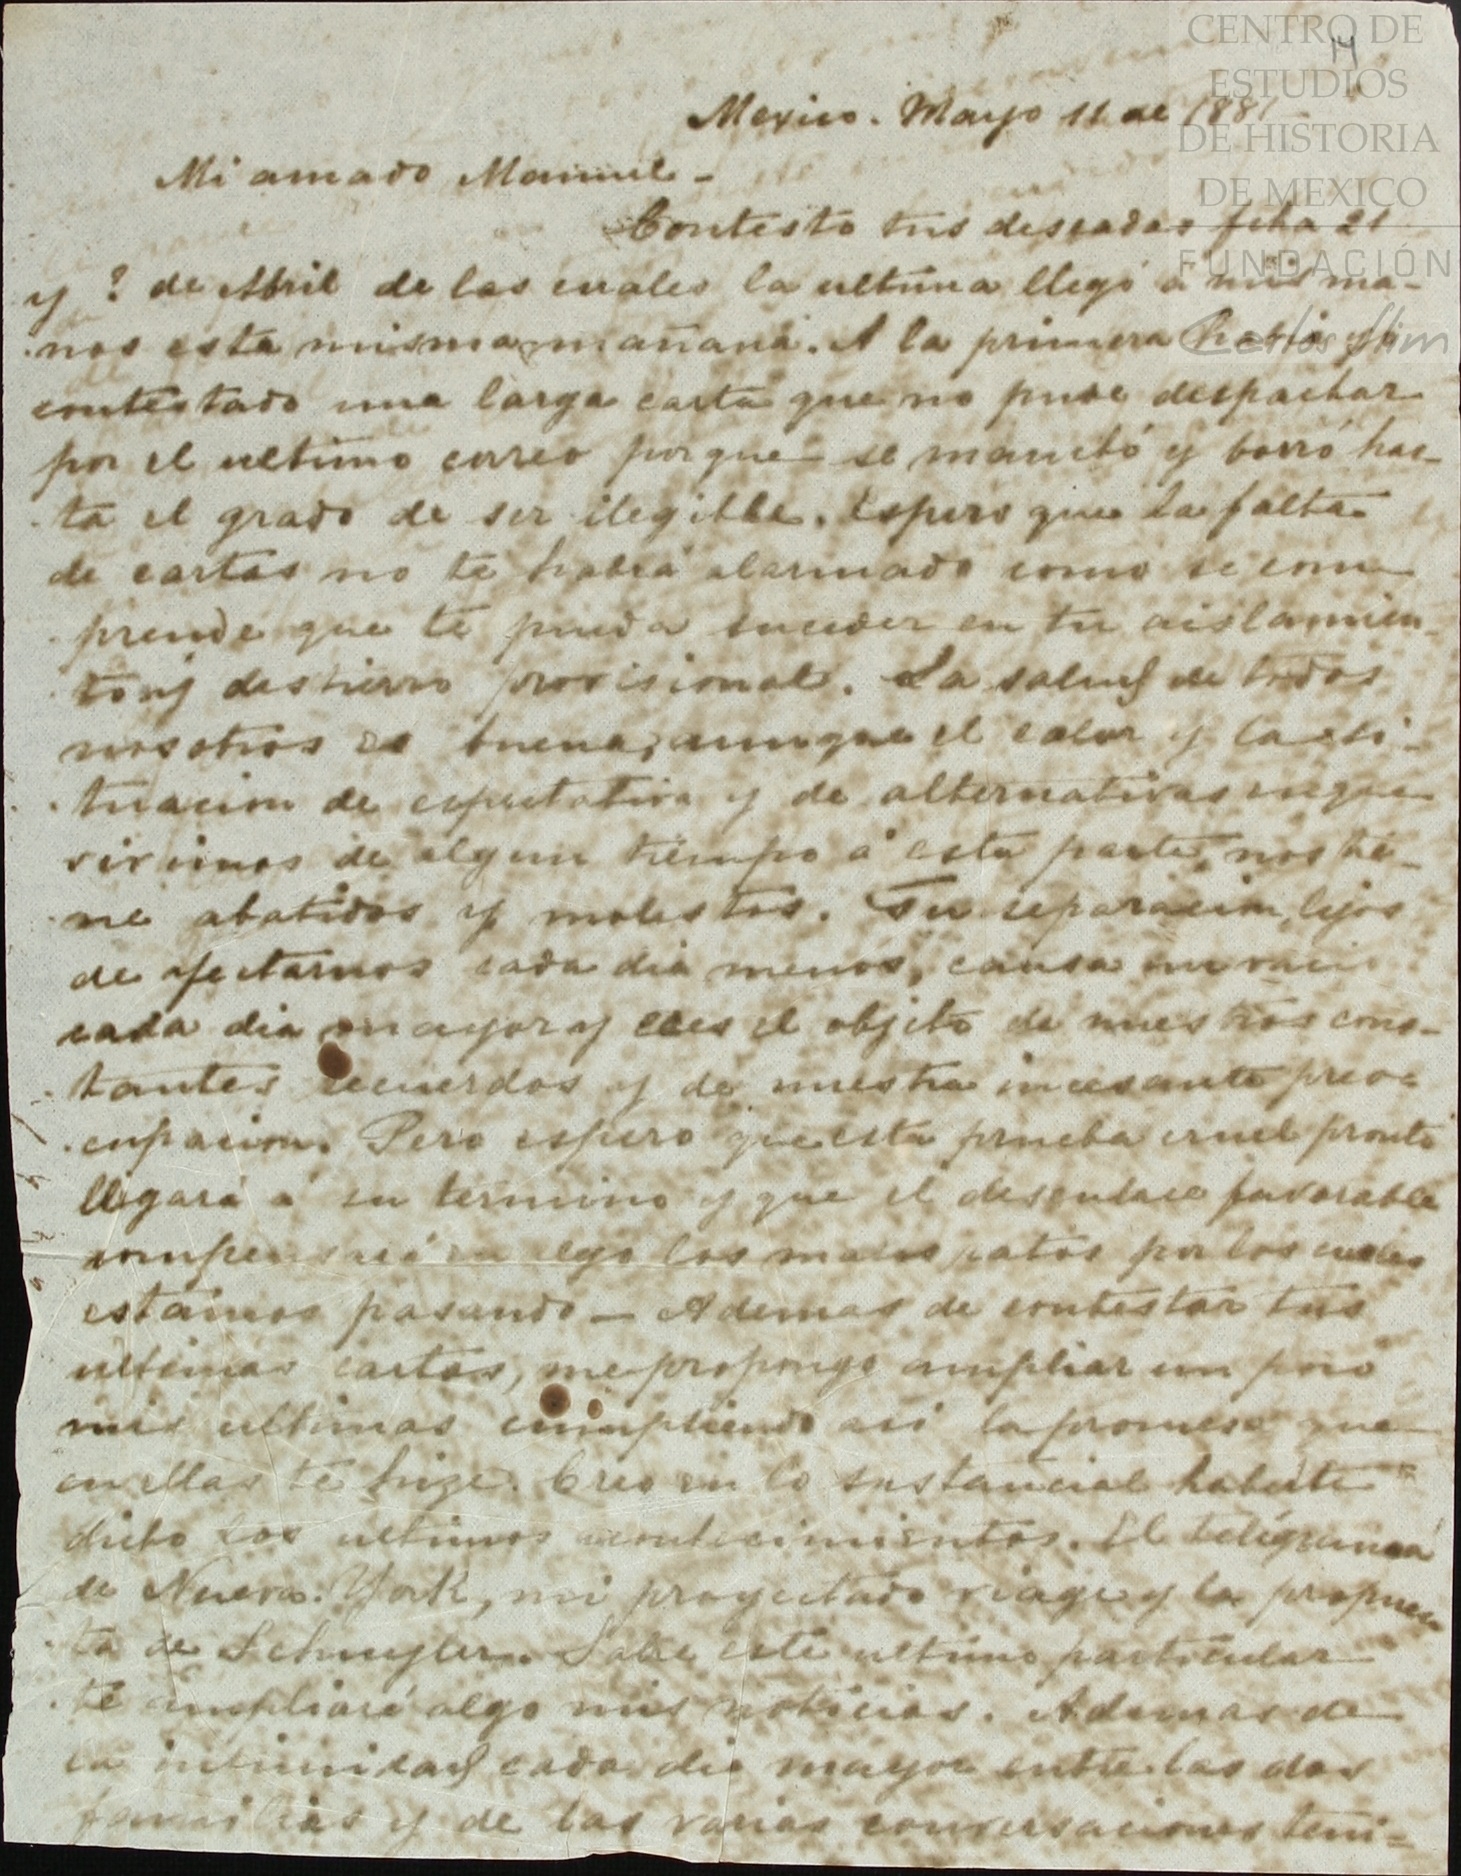 CENTRO DE
ESTUDIOS
DE HISTORIA
DE MEXICO
FUNDACIÓN
Carlos Slim
14
Mexico. Mayo 11 de 1881
Mi amado Manuel -
Contesto tus deseadas fcha 21
y ? de Abril de las cuales la ultima llegó a mis ma-
nos esta misma mañana. A la primera habia
contestado una larga carta que no pude despachar
por el ultimo correo porque se manchó y borró has-
ta el grado de ser ilegible. Espero que la falta
de cartas no te habrá alarmado como se com
prende que te pueda suceder en tu aislamien-
to y destierro provisional. La salud de todos
nosotros es buena, aunque el calor y la si-
tuacion de espectativa y de alternativas en que
vivimos de algun tiempo á esta parte, nos tie-
ne abatidos y molestos. Tu separacion, lejos
de afectarnos cada dia menos, causa un vacio
cada dia mayor y eres el objeto de nuestros cons-
tantes recuerdos y de nuestra incesante preo-
cupacion. Pero espero que esta prueba cruel pronto
llegará á su termino y que el desenlace favorable
compensará en algo los malos ratos por los cuales
estamos pasando - Ademas de contestar tus
ultimas cartas, me propongo ampliar un poco
mis ultimas cumpliendo asi la promesa que
en ellas te hize. Creo en lo sustancial haberte
dicho los ultimos acontecimientos. El telégrama
de Nueva. York, mi proyectado viage y la propues-
ta de Schuyler. Sobre este ultimo particular
te ampliaré algo mis noticias. Ademas de
la intimidad cada dia mayor entre las dos
familias y de las varias conversaciones teni-